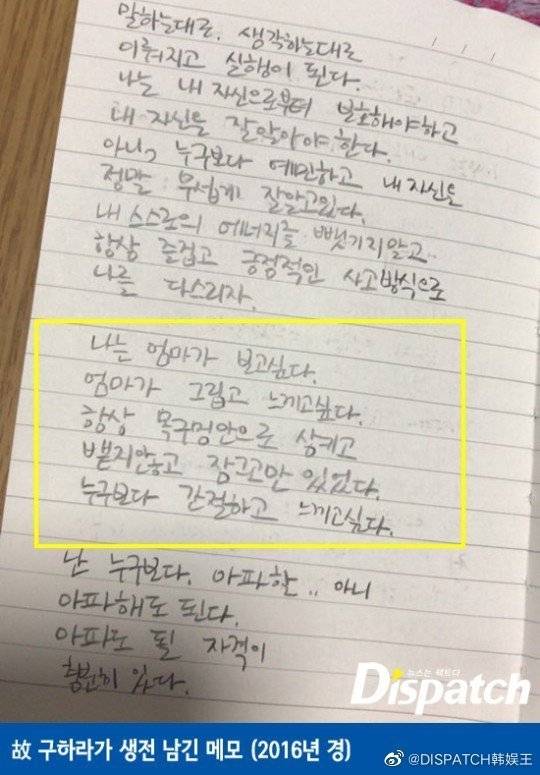 말하는대로, 생각하는대로
이뤄지고 실행이 된다.
나는 내 자신으로부터 보호해야하고
내 자신을 잘알아야 한다.
아니, 누구보다 예민하고 내 자신을
정말 무섭게 잘알고있다.
내 스스로의 에너지를 뺏기지말고
항상 즐겁고 긍정적인 사고방식으로
나를 다스리자.
나는 엄마가 보고싶다.
엄마가 그립고 느끼고싶다.
항상 목구멍안으로 삼키고
뱉지안고 잠그고만 있었다.
누구보다 간절하고 느끼고싶다.
난 누구보다. 아파할 .. 아니
아파해도 된다.
아파도 될 자격이
충분히 있다.
뉴스는 팩트다
Dispatch
故 구하라가 생전 남긴 메모 (2016년 경)
@DISPATCH韩娱王